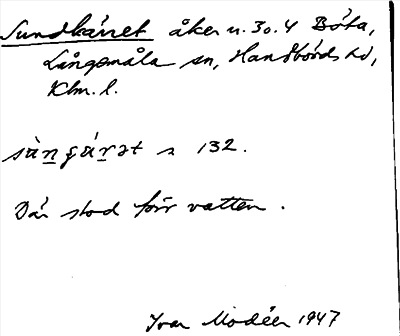 Sundkärret åker u. 30.4 Böta,
Långemåla sn, Handbörds hd,
Klm. l.
sùn̲ɟár̲ət s 132.
Där stod förr vatten.
Ivar Modéer 1947